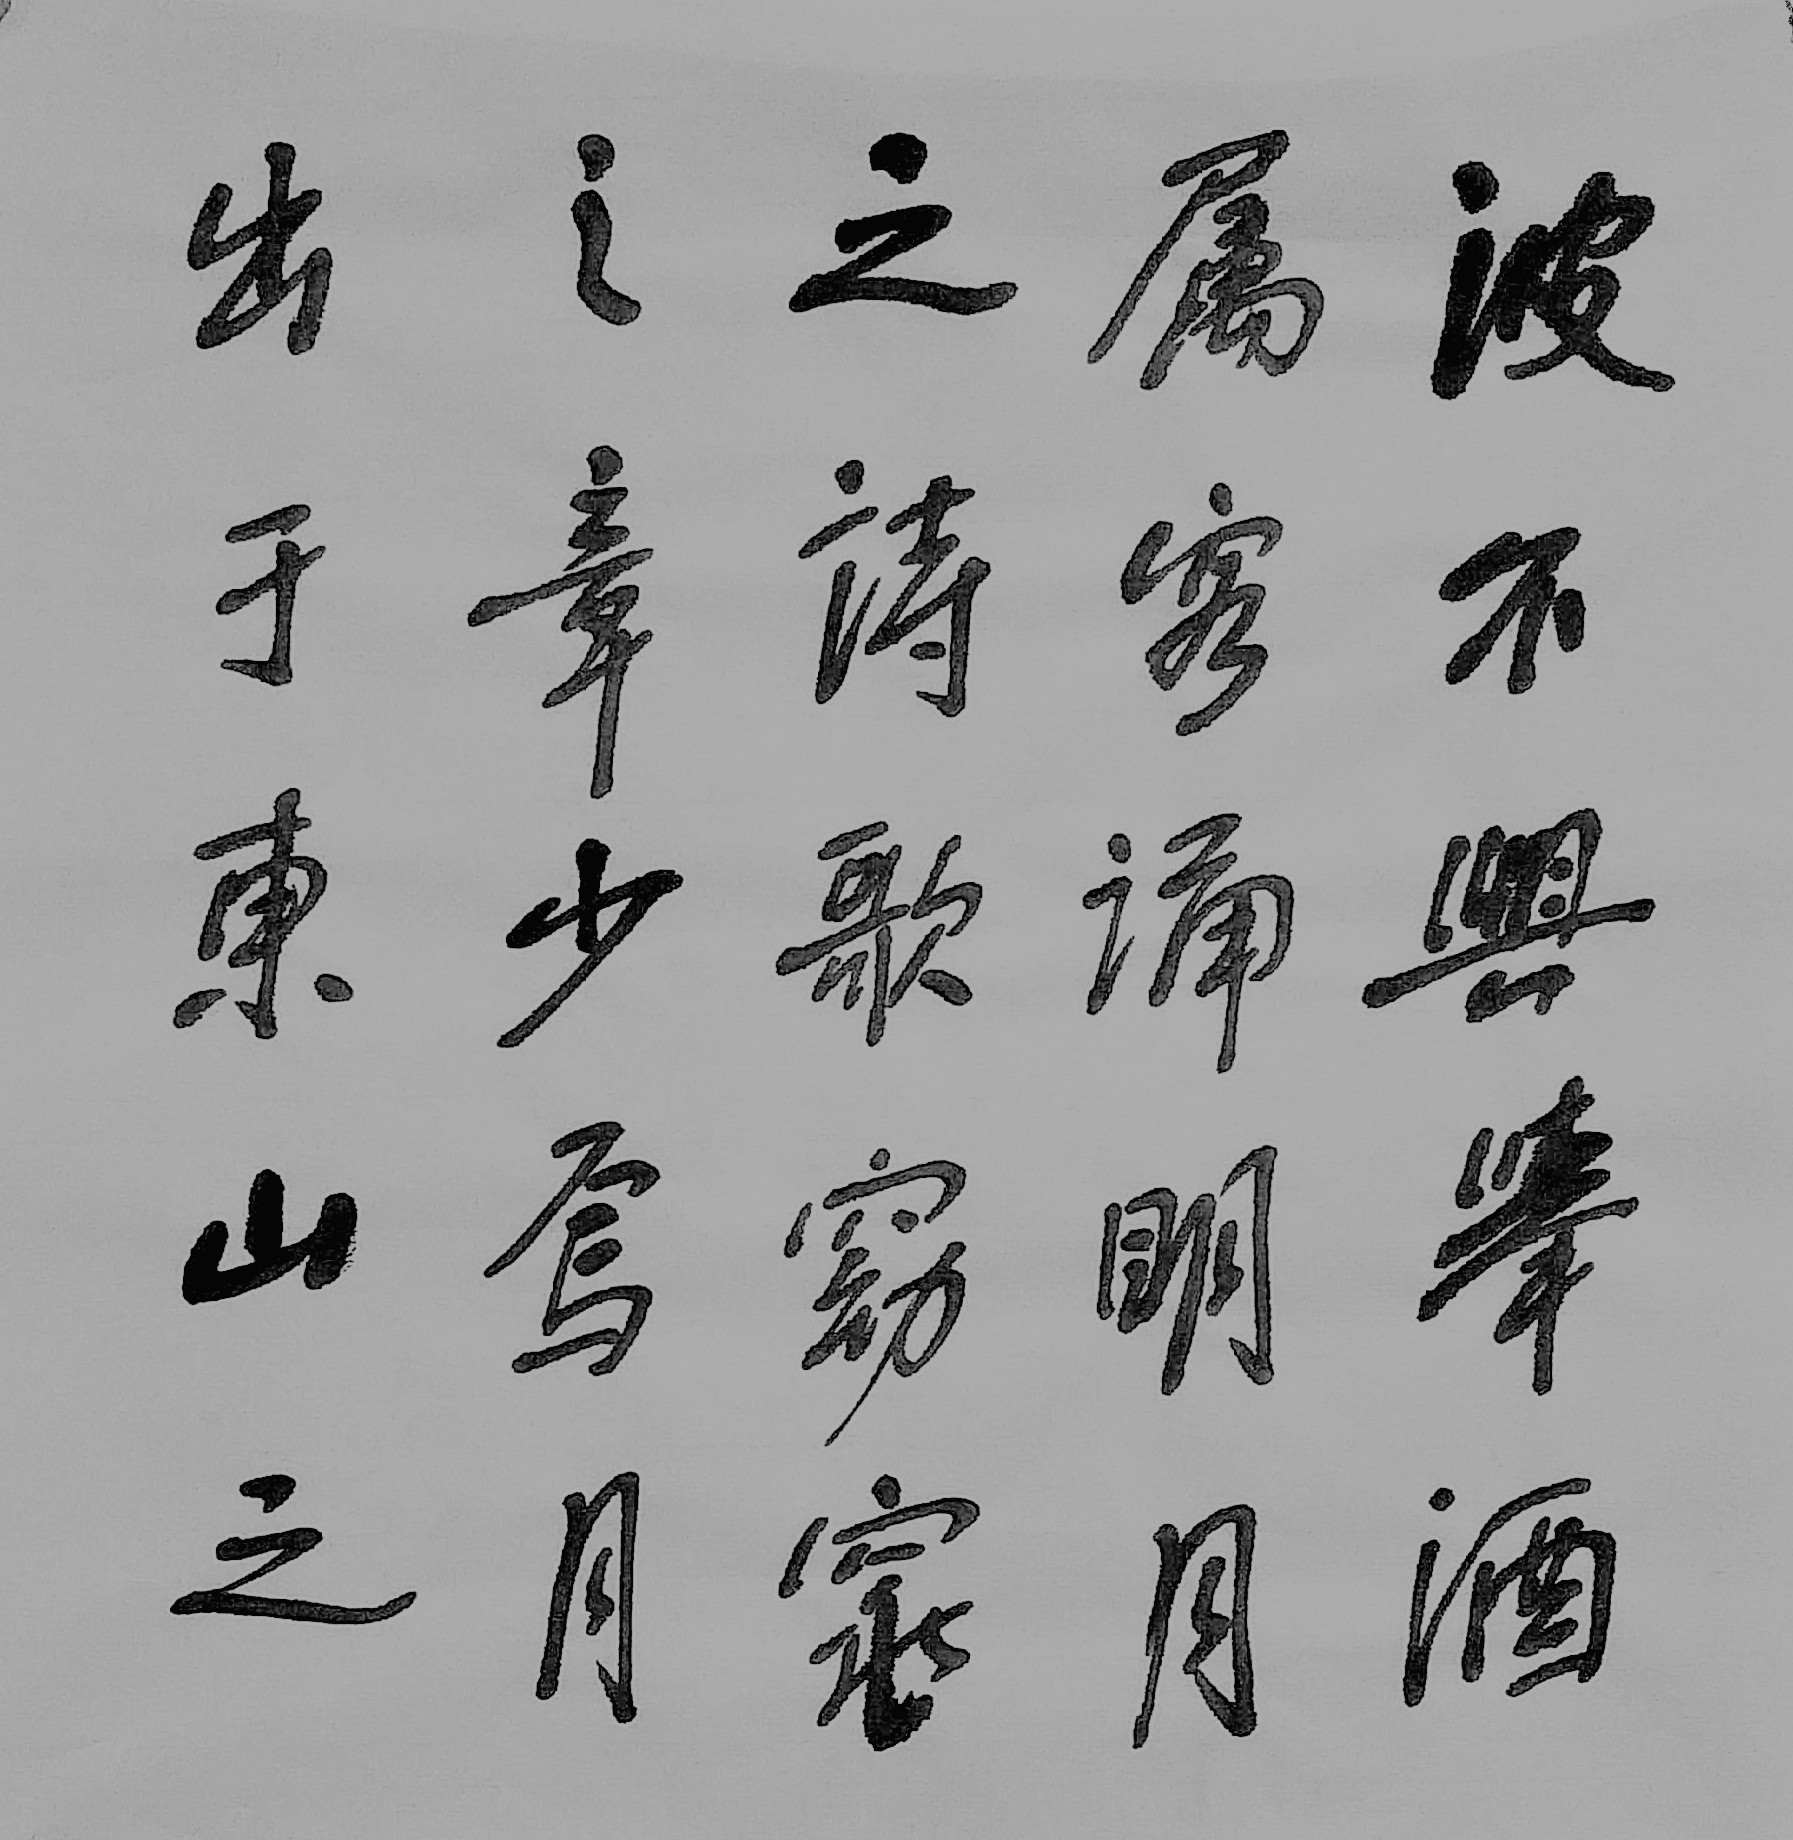 波不興舉酒
属客誦明月
之詩歌窈窕
之章少焉月
出于東山之